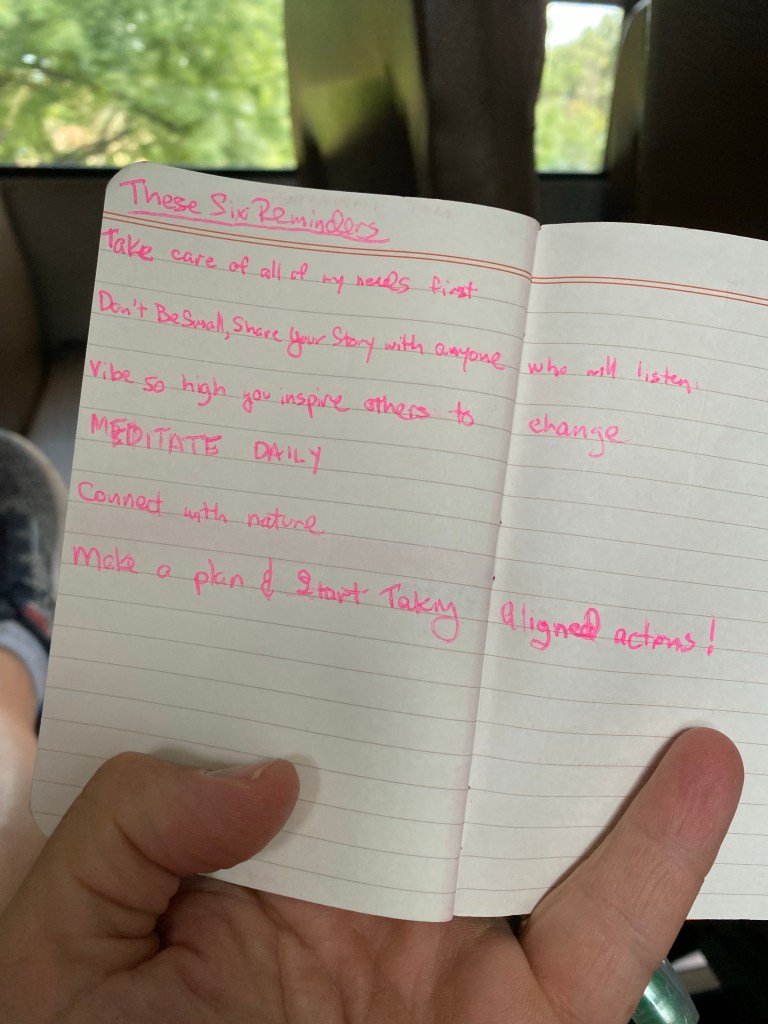 These Six Reminders
Take care of all of my needs first
Don't Be Small, Share Your Story with anyone who will listen.
Vibe so high you inspire others to change
MEDITATE DAILY
Connect with nature
Make a plan & Start Taking Aligned actions!